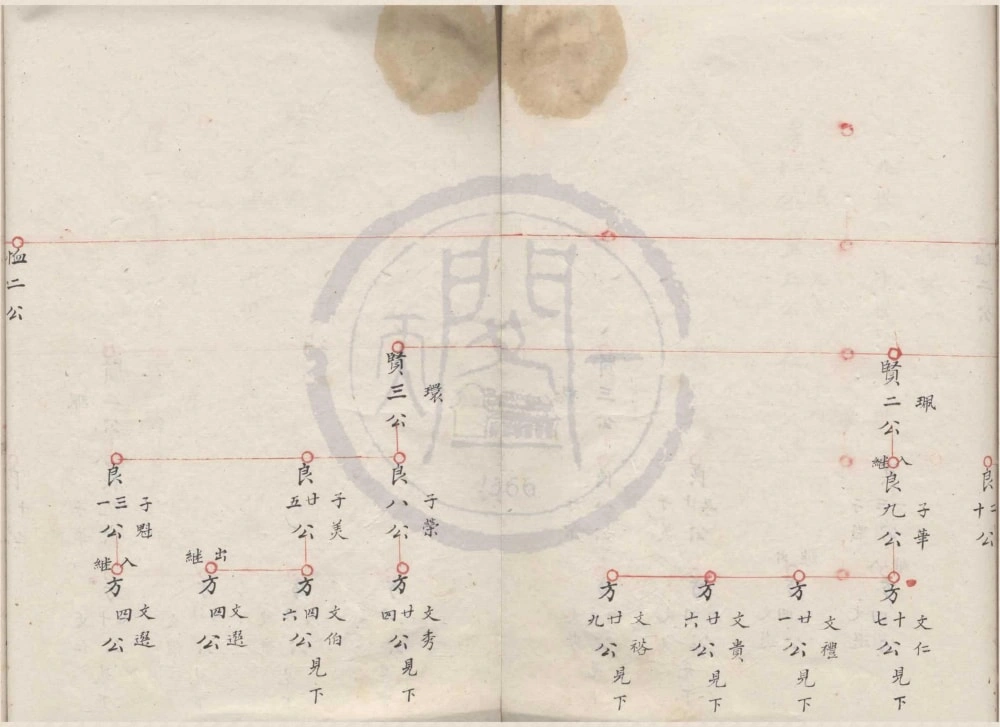 良
十二公
賢二公
珮
入継
良九公
子華
方十七公見下
文仁
方廿一公見下
文禮
方廿六公見下
文貴
方廿九公見下
賢三公
環
良八公
子榮
方廿四公見下
文秀
良廿五公
子美
方四六公見下
文伯
出継
方四公
文選
良三一公
子魁
入継
方四公
文選
二公
1566